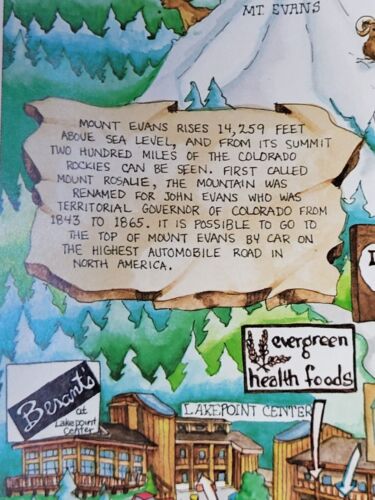 MT. EVANS
MOUNT EVANS RISES 14,259 FEET
ABOVE SEA LEVEL, AND FROM ITS SUMMIT
TWO HUNDRED MILES OF THE COLORADO
ROCKIES CAN BE SEEN. FIRST CALLED
MOUNT ROSALIE, THE MOUNTAIN WAS
RENAMED FOR JOHN EVANS WHO WAS
TERRITORIAL GOVERNOR OF COLORADO FROM
1843 TO 1865. IT IS POSSIBLE TO GO TO
THE TOP OF MOUNT EVANS BY CAR ON
THE HIGHEST AUTOMOBILE ROAD IN
NORTH AMERICA.
evergreen
health foods
Besant's
at
Lakepoint
Center
LAKEPOINT CENTER